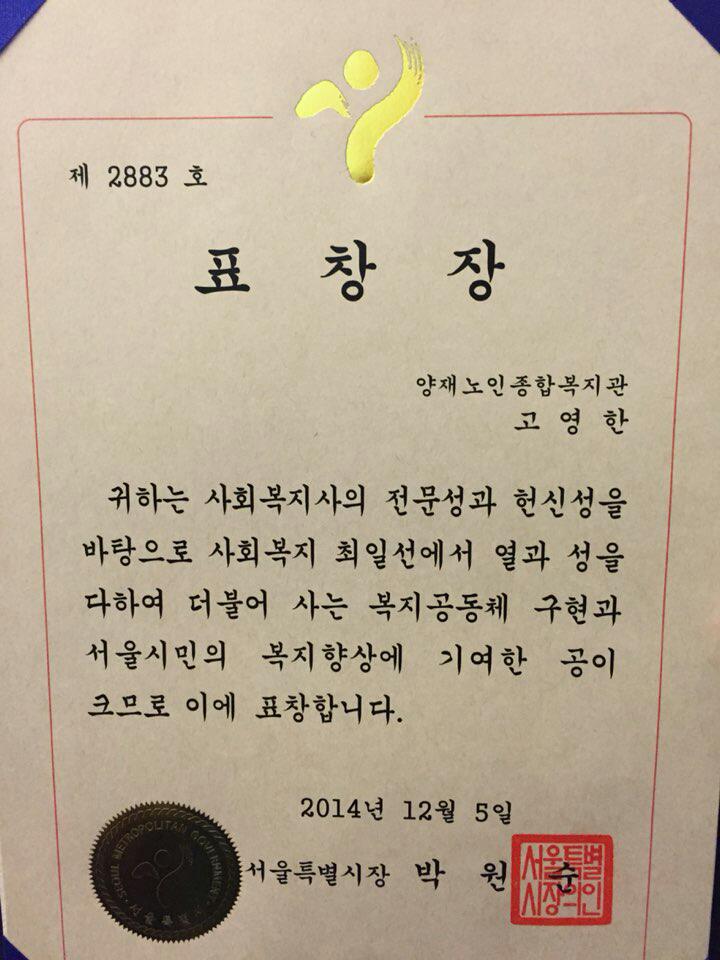 제 2883 호
표 창 장
양재노인종합복지관
고 영 한
귀하는 사회복지사의 전문성과 헌신성을
바탕으로 사회복지 최일선에서 열과 성을
다하여 더불어 사는 복지공동체 구현과
서울시민의 복지향상에 기여한 공이
크므로 이에 표창합니다.
2014년 12월 5일
서울특별시장 박 원 순
서울특별
시장의인
SEOUL METROPOLITAN GOVERNMENT